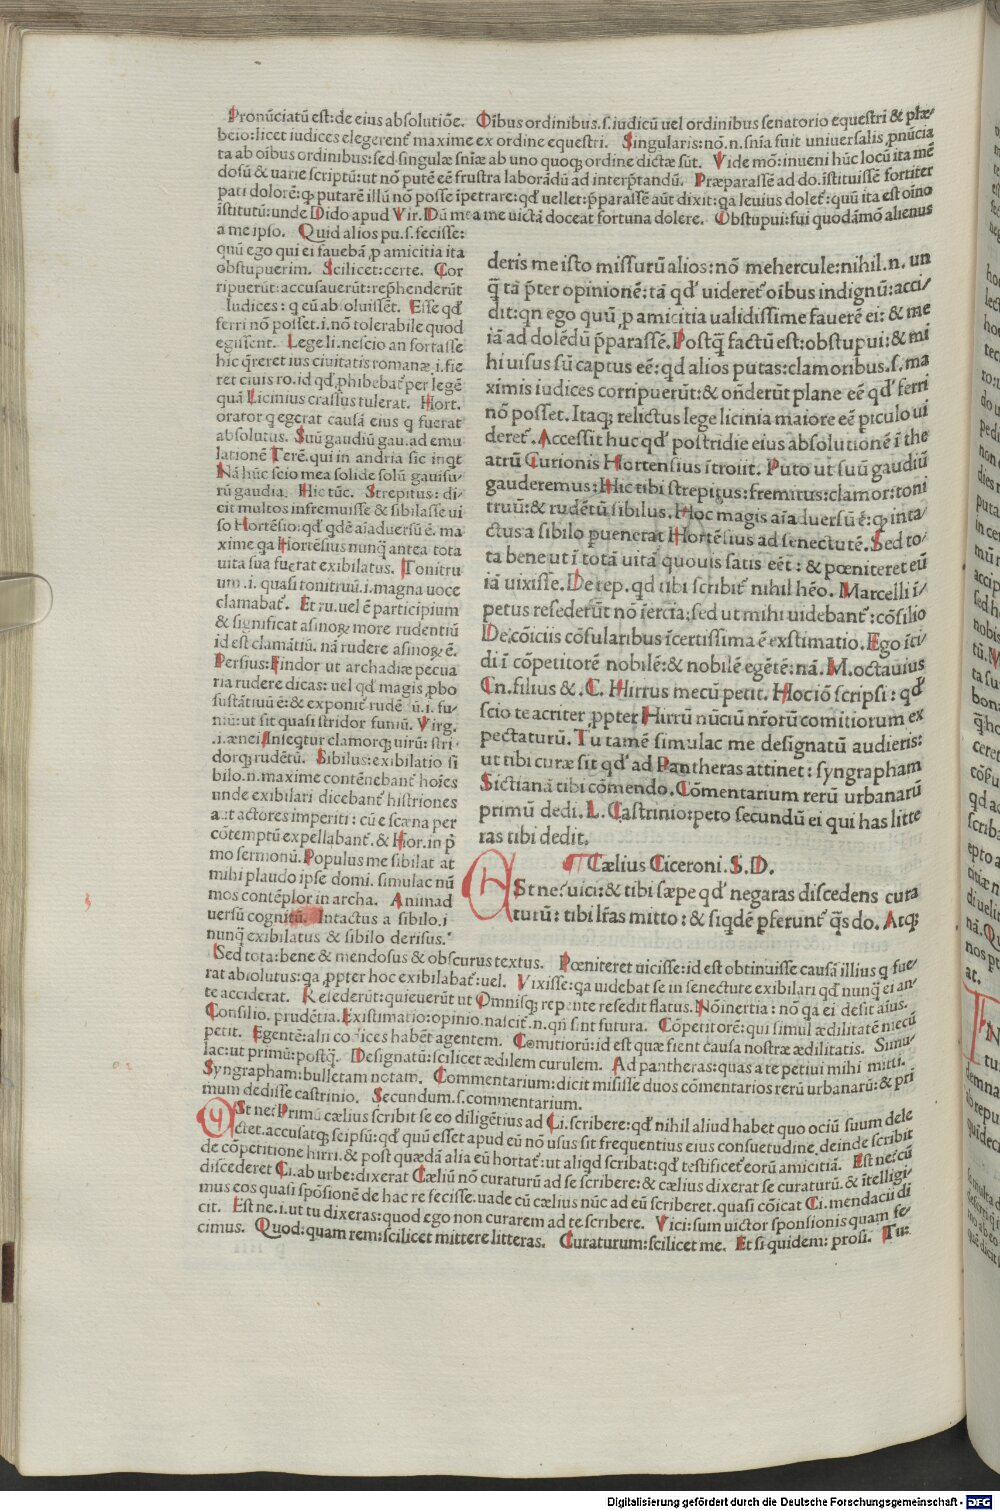 Pronūciatū est: de eius absolutiōe. Oībus ordinibus. s. iudicū uel ordinibus senatorio equestri & plæ-
beio: licet iudices elegerent᷑ maxime ex ordine equestri. Singularis: nō. n. snīa fuit uniuersalis ꝓnūcia
ta ab oibus ordinibus: sed singulæ sniæ ab uno quoqꝫ ordine dictæ sūt. Vide mō: inueni hūc locū ita mē
dosū & uarie scriptū: ut nō putē eē frustra laborādū ad interp̄tandū. Præparassē ad do. īstituissē fortiter
pati dolorē: qꝫ putarē illū nō posse īpetrare: qd' uellet: p̄parassē aūt dixit: qa leuius dolet᷑: quū ita est oīno
īstitutū: unde Dido apud Vir. Dū mea me uictā doceat fortuna dolere. Obstupui: fui quodāmō alienus
a me ipso. Quid alios pu. s. fecisse:
quū ego qui ei fauebā ꝓ amicitia ita
obstupuerim. Scilicet: certe. Cor
ripuerūt: accusauerūt: rep̄henderūt
Iudices: q eū absoluissēt. Esse qd'
ferri nō posset. i. nō tolerabile quod
egissent. Lege li. nescio an fortasse
hic q̄reret ius ciuitatis romanæ. i. fie
ret ciuis ro. id qd' ꝓhibebat᷑ per legē
quā Licinius crassus tulerat. Hort.
orator q egerat causā eius q fuerat
absolutus. Suū gaudiū gau. ad emu
lationē Terē. qui in andria sic inqt
Nā hūc scio mea solide solū gauisu-
rū gaudia. Hic tūc. Strepitus: di-
cit multos infremuisse & sibilasse ui
so Hortēsio: qd' qdē aīaduersū ē. ma
xime qa Hortēsius nunq̄ antea tota
uita sua fuerat exibilatus. Tonitru
um. i. quasi tonitruū. i. magna uoce
clamabat᷑. Et ru. uel ē participium
& significat asinoꝝ more rudentiū
id est clamātiū. nā rudere asinoꝝ ē.
Persius: Findor ut archadiæ pecua
ria rudere dicas: uel qd' magis ꝓbo
sustātiuū ē: & exponit᷑ rudē ū. i. fu-
niū: ut sit quasi stridor funiū. Virg.
.i. ænei Inseqtur clamorqꝫ uirū: stri-
dorqꝫ rudētū. Sibilus: exibilatio si
bilo. n. maxime contēnebant᷑ hoīes
unde exibilari dicebant᷑ histriones
aut actores imperiti: cū e scæna per
cōtemptū expellabant᷑. & Hor. in p̄
mo sermonū. Populus me sibilat at
mihi plaudo ipse domi. simulac nū
mos contēplor in archa. Animad
uersū cognitū. Intactus a sibilo. i
nunq̄ exibilatus & sibilo derisus.
deris me isto missurū alios: nō mehercule: nihil. n. un
q̄ tā p̄ter opinionē: tā qd' uideret᷑ oibus indignū: acci-
dit: qn ego quū ꝓ amicitia ualidissime fauerē ei: & me
iā ad dolēdū p̄parassē. Postq̄ factū est: obstupui: & mi
hi uisus sū captus eē: qd' alios putas: clamoribus. s. ma
ximis iudices corripuerūt: & oñderūt plane eē qd' ferri
nō posset. Itaqꝫ relictus lege licinia maiore eē piculo ui
deret᷑. Accessit huc qd' postridie eius absolutionē ī the
atrū Curionis Hortensius ītroiit. Puto ut suū gaudiū
gauderemus: Hic tibi strepitus: fremitus: clamor: toni
truū: & rudētū sibilus. Hoc magis aīaduersū ē: qꝫ inta-
ctus a sibilo puenerat Hortēsius ad senectutē. Sed to-
ta bene ut ī totā uitā quouis satis eēt: & pœniteret eū
iā uixisse. De rep. qd tibi scribit᷑ nihil hēo. Marcelli ī-
petus resederūt nō īertia: sed ut mihi uidebant᷑: cōsilio
De cōiciis cōsularibus īcertissima ē exstimatio. Ego īci-
di ī cōpetitorē nobilē: & nobilē egētē: nā. M. octauius
Cn. filius &. C. Hirrus mecū petit. Hoc iō scripsi: qd'
scio te acriter ꝓpter Hirrū nūciū nr̄orū comitiorum ex
pectaturū. Tu tamē simulac me designatū audieris:
ut tibi curæ sit qd' ad Pantheras attinet: syngrapham
Sictianā tibi cōmendo. Cōmentarium rerū urbanarū
primū dedi. L. Castrinio: peto secundū ei qui has litte
ras tibi dedit.
Cælius Ciceroni. S. D.
ESt ne? uici: & tibi sæpe qd' negaras discedens cura
turū: tibi lr̄as mitto: & siqdē pferunt᷑ q̄s do. Atqꝫ
Sed tota: bene & mendosus & obscurus textus. Pœniteret uicisse: id est obtinuisse causā illius q fue-
rat absolutus: qa ꝓpter hoc exibilabat᷑: uel. Vixisse: qa uidebat se in senectute exibilari qd' nunq̄ ei an-
te acciderat. Resederūt: quieuerūt ut Omnisqꝫ repente resedit flatus. Nō inertia: nō qa ei desit aīus.
Consilio. prudētia. Existimatio: opinio. nascit᷑. n. qn sint futura. Cōpetitorē: qui simul ædilitatē mecū
petit. Egentē: alii codices habēt agentem. Comitiorū: id est quæ fient causa nostræ ædilitatis. Simu-
lac: ut primū: postq̄. Designatū: scilicet ædilem curulem. Ad pantheras: quas a te petiui mihi mitti.
Syngrapham: bulletam notam. Commentarium: dicit misisse duos cōmentarios rerū urbanarū: & pri
mum dedisse castrinio. Secundum. s. commentarium.
ESt ne? Primū cælius scribit se eo diligētius ad Ci. scribere: qd' nihil aliud habet quo ociū suum dele
ctet. accusatqꝫ seipsū: qd' quū esset apud eū nō usus sit frequentius eius consuetudine. deinde scribit
de cōpetitione hirri. & post quædā alia eū hortat᷑: ut aliqd scribat: qd' testificet᷑ eorū amicitiā. Est ne? cū
discederet Ci. ab urbe: dixerat Cæliū nō curaturū ad se scribere: & cælius dixerat se curaturū. & ītelligi-
mus eos quasi spōsionē de hac re fecisse. uade cū cælius nūc ad eū scriberet. quasi cōicat Ci. mendacii di
cit. Est ne. i. ut tu dixeras: quod ego non curarem ad te scribere. Vici: sum uictor sponsionis quam fe-
cimus. Quod: quam rem: scilicet mittere litteras. Curaturum: scilicet me. Et si quidem: prosi. Tu:
Digitalisierung gefördert durch die Deutsche Forschungsgemeinschaft - DFG